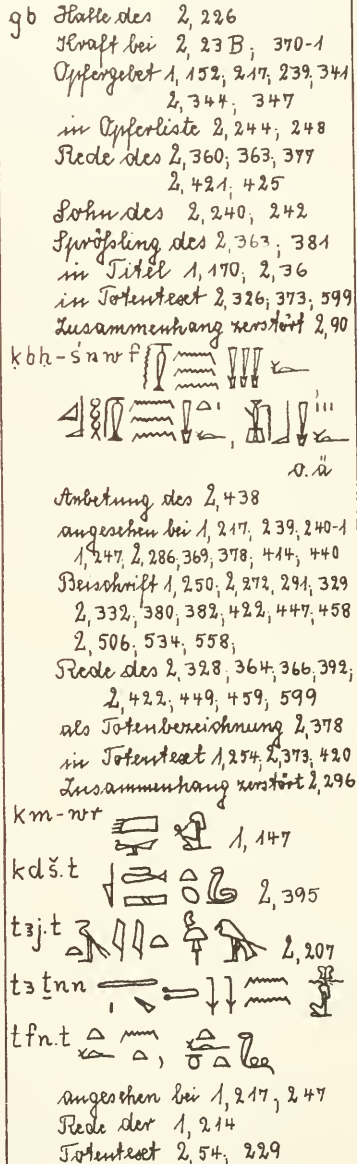 gb Halle des 2, 226
Kraft bei 2, 23 B; 370-1
Opfergebet 1, 152; 217; 239; 341
2, 344; 347
in Opferliste 2, 244; 248
Rede des 2, 360; 363; 377
2, 421; 425
Sohn des 2, 240; 242
Sprößling des 2, 363; 381
in Titel 1, 170; 2, 36
in Totentext 2, 326; 373; 599
Zusammenhang zerstört 2, 90
ḳbḥ-śnwf
o. ä
Anbetung des 2, 438
angesehen bei 1, 217; 239; 240-1
1, 247; 2, 286; 369; 378; 414; 440
Beischrift 1, 250; 2, 272, 291; 329
2, 332; 380; 382; 422; 447; 458
2, 506; 534; 558;
Rede des 2, 328; 364; 366; 392;
2, 422; 449; 459; 599
als Totenbezeichnung 2, 378
in Totentext 1, 254; 2, 373; 420
Zusammenhang zerstört 2, 296
km-wr 1, 147
kdš.t 2, 395
tꜣj.t 2, 207
tꜣ ṯnn
tfn.t
angesehen bei 1, 217; 247
Rede der 1, 214
Totentext 2, 54; 229